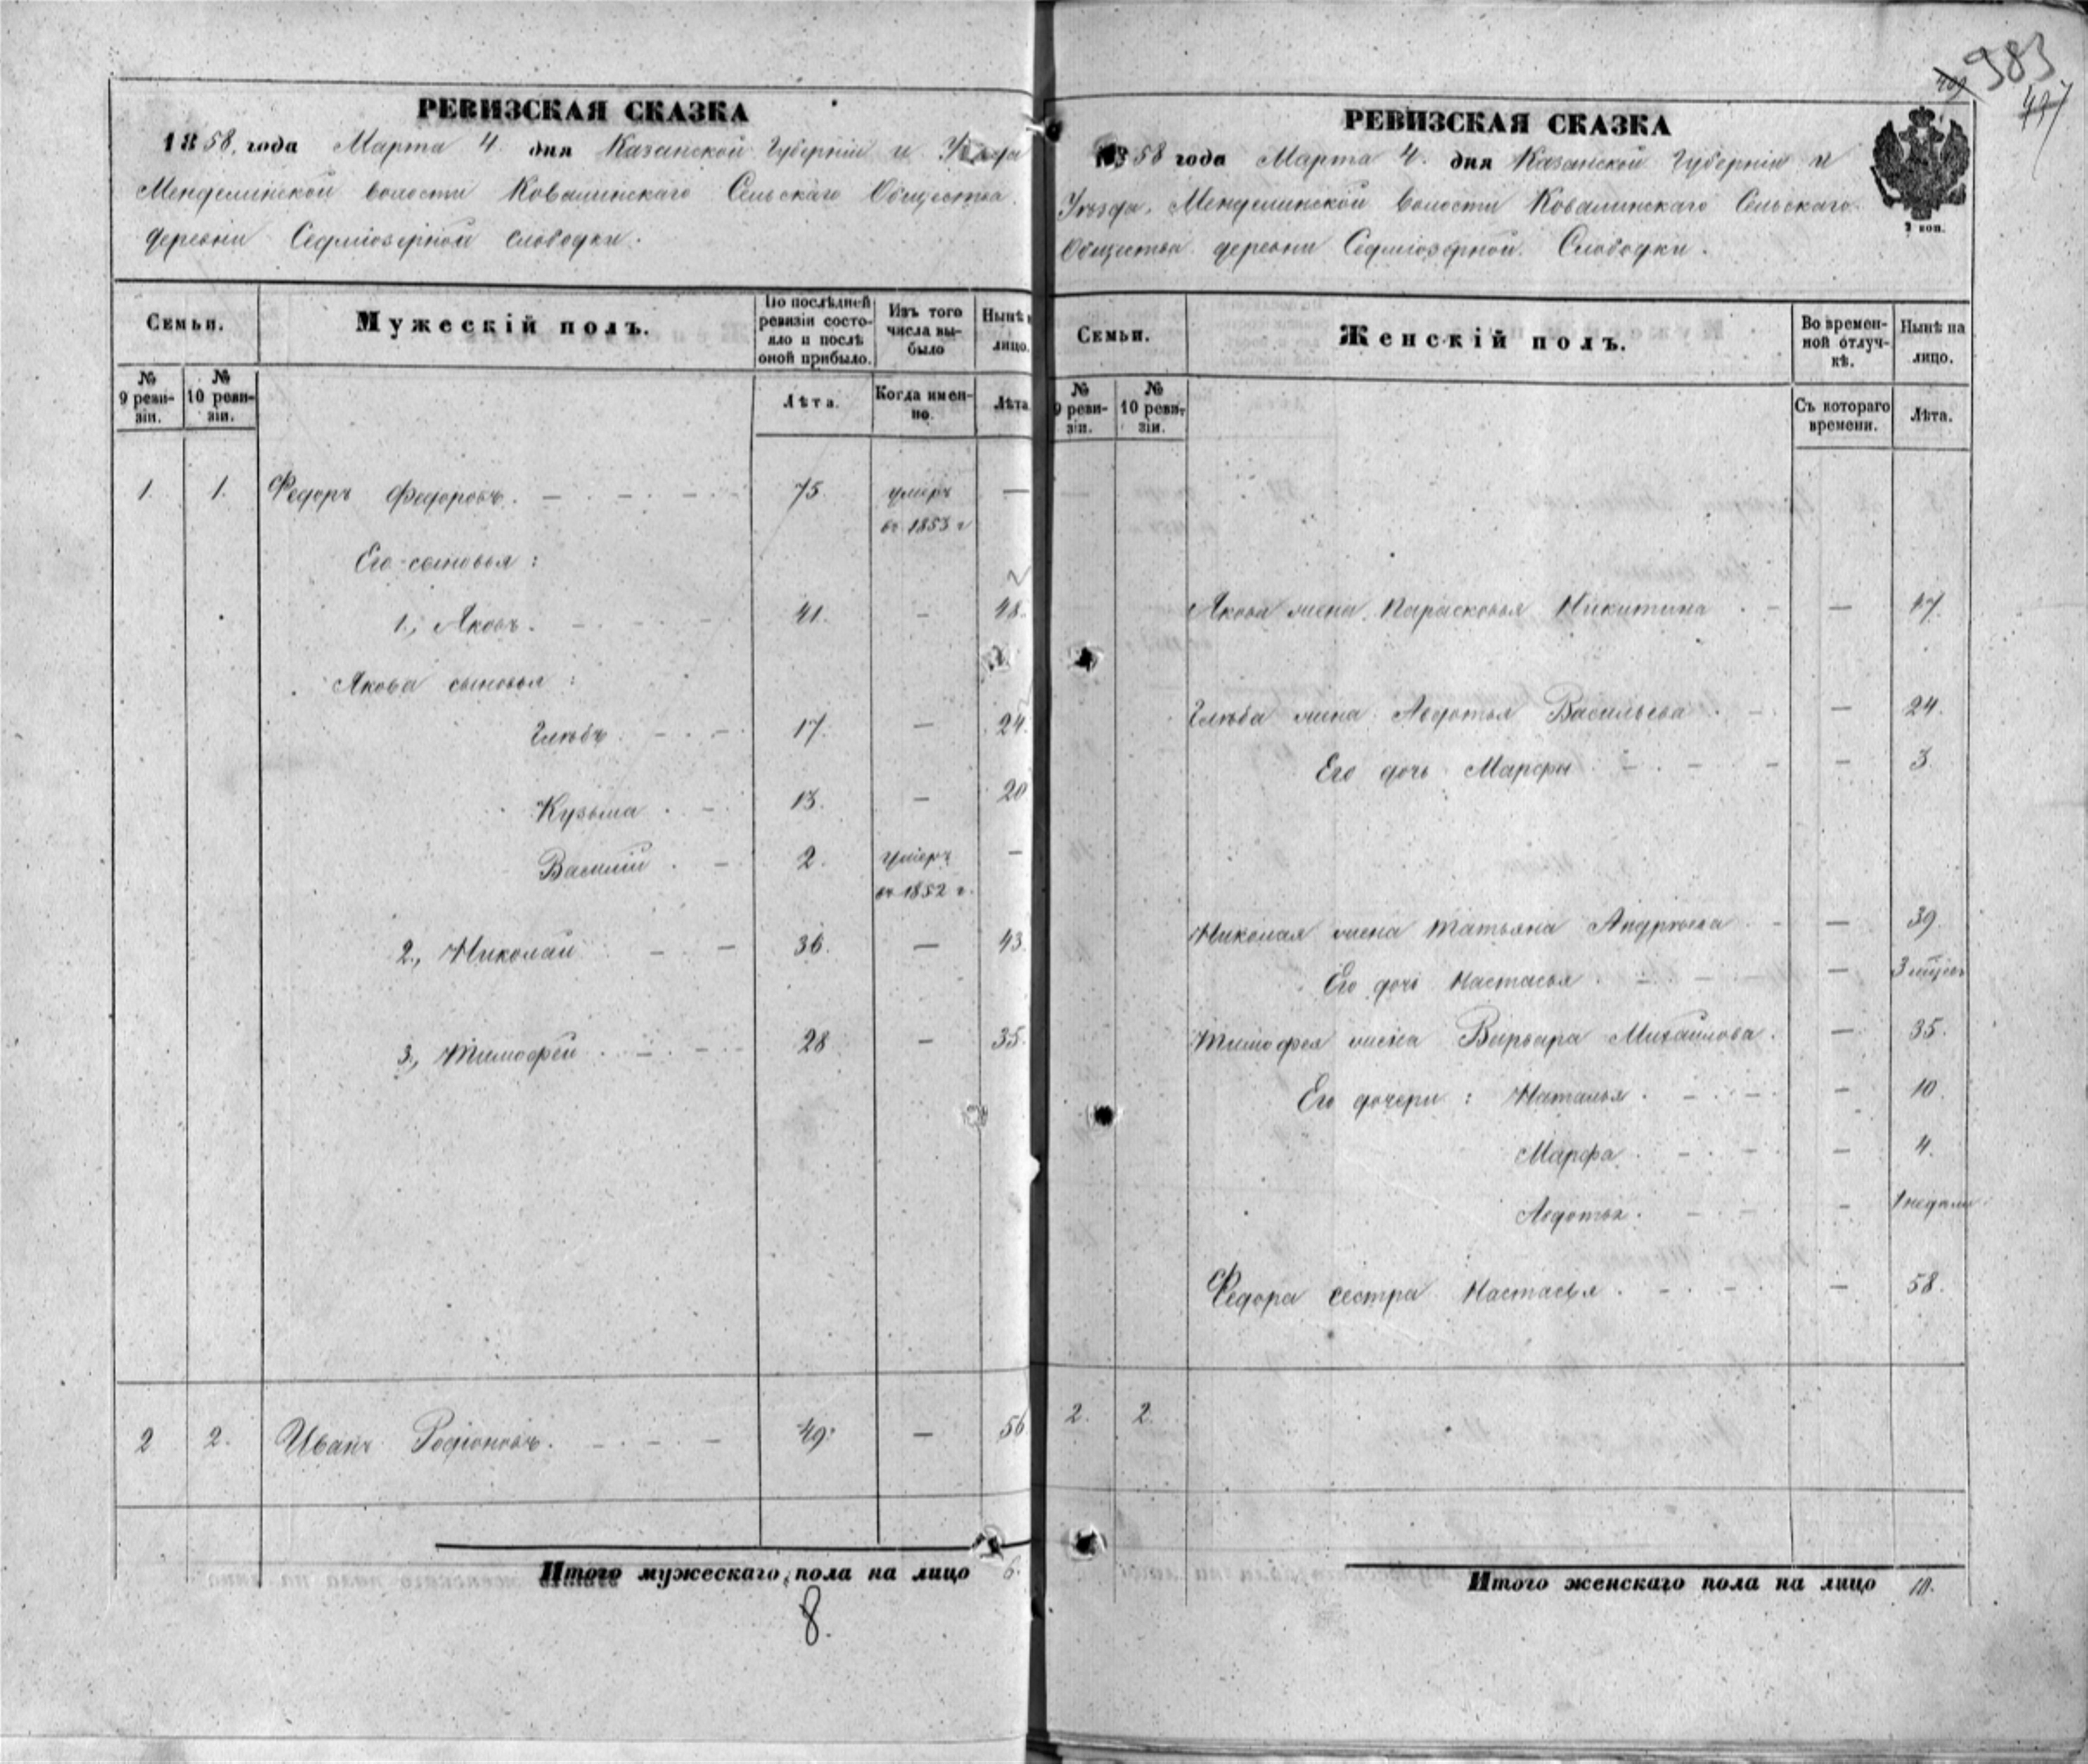 РЕВИЗСКАЯ СКАЗКА
1858, года Марта 4. дня Казанской Губерніи и Уѣзда
Менделинской волости Ковалинскаго Сельскаго Общества
деревни Седміозерной слободки.
Семьи.
Мужескій полъ.
По послѣдней ревизіи состояло и послѣ оной прибыло.
Изъ того числа выбыло
Нынѣ
лицо.
№ 9 ревизіи.
№ 10 ревизіи.
Лѣта.
Когда именно.
Лѣта
1. 1. Федоръ Федоровъ. 75. умеръ въ 1853 г —
Его сыновья:
1., Яковъ. 41. — 48.
Якова сыновья:
Глѣбъ. 17. — 24.
Кузьма 13. — 20
Василій 2. умеръ въ 1852 г. —
2., Николай 36. — 43.
3., Тимофей 28 — 35.
2 2. Иванъ Родіоновъ. 49. — 56
Итого мужескаго пола на лицо 6.
8.
983
РЕВИЗСКАЯ СКАЗКА
1858 года Марта 4. дня Казанской Губерніи и
Уѣзда, Менделинской волости Ковалинскаго Сельскаго
Общества деревни Седміозерной Слободки.
2 коп.
Семьи.
Женскій полъ.
Во временной отлучкѣ.
Нынѣ на лицо.
№ 9 ревизіи.
№ 10 ревизіи.
Съ котораго времени.
Лѣта.
Якова жена Парасковья Никитина —
Глѣба жена Авдотья Васильева — 24.
Его дочь Марфа — 3.
Николая жена Татьяна Андреева — 39.
Его дочь Настасья — 3
Тимофея жена Варвара Михайлова. — 35.
Его дочери: Наталья. — 10.
Марфа — 4.
Авдотья. — 1 недели
Федора сестра Настасья. — 58.
2. 2.
Итого женскаго пола на лицо 10.